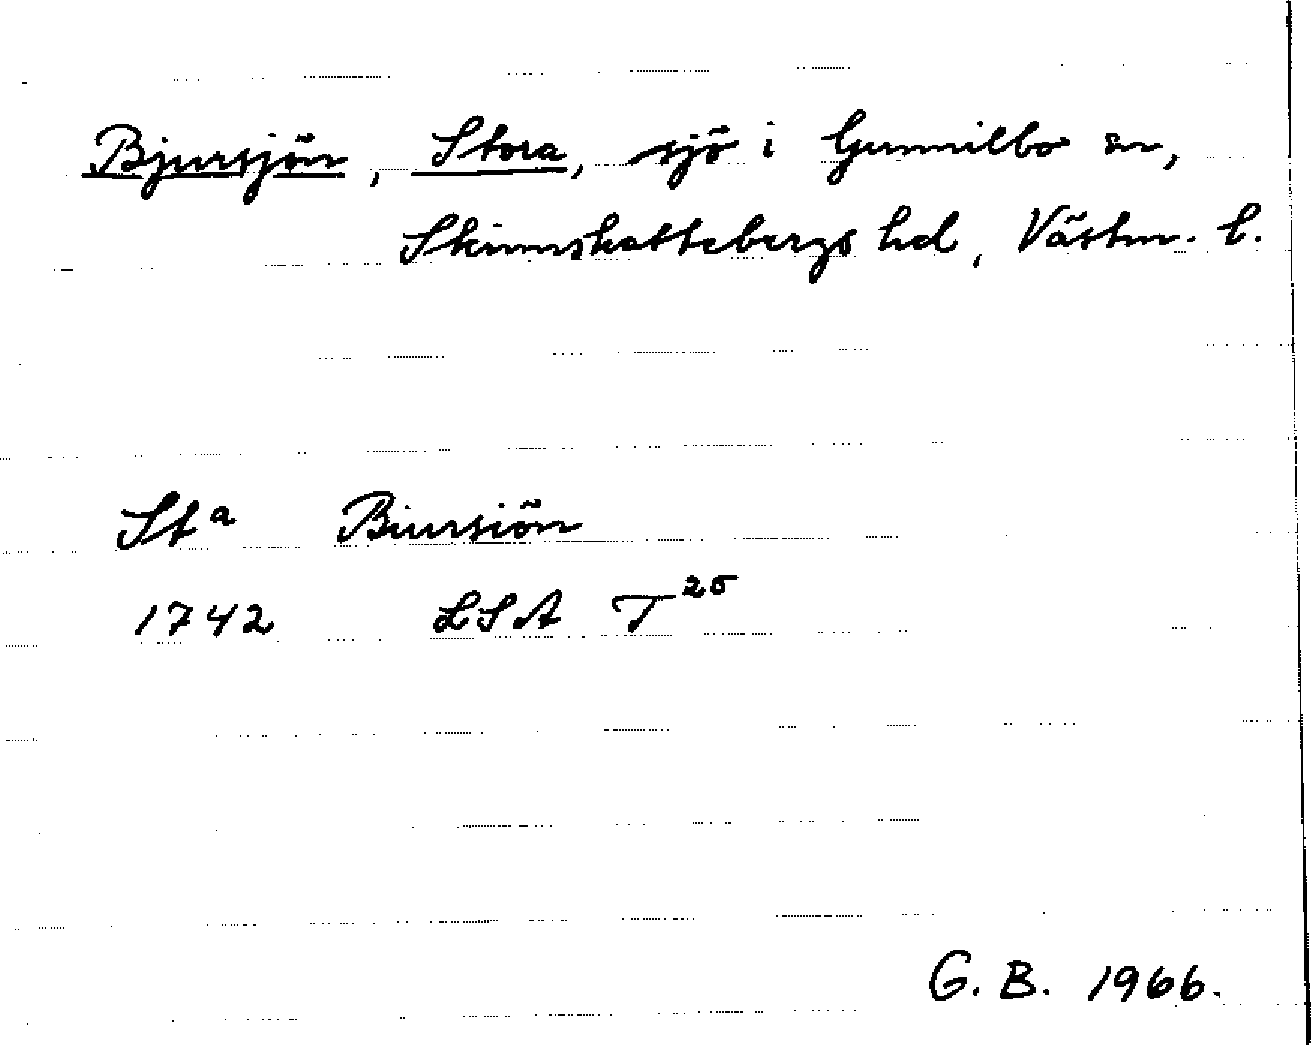 Bjursjön, Stora, sjö i Gunnilbo sn,
Skinnskattebergs hd, Västm. l.
Sta Biursiön
1742 LSA T 25
G. B. 1966.